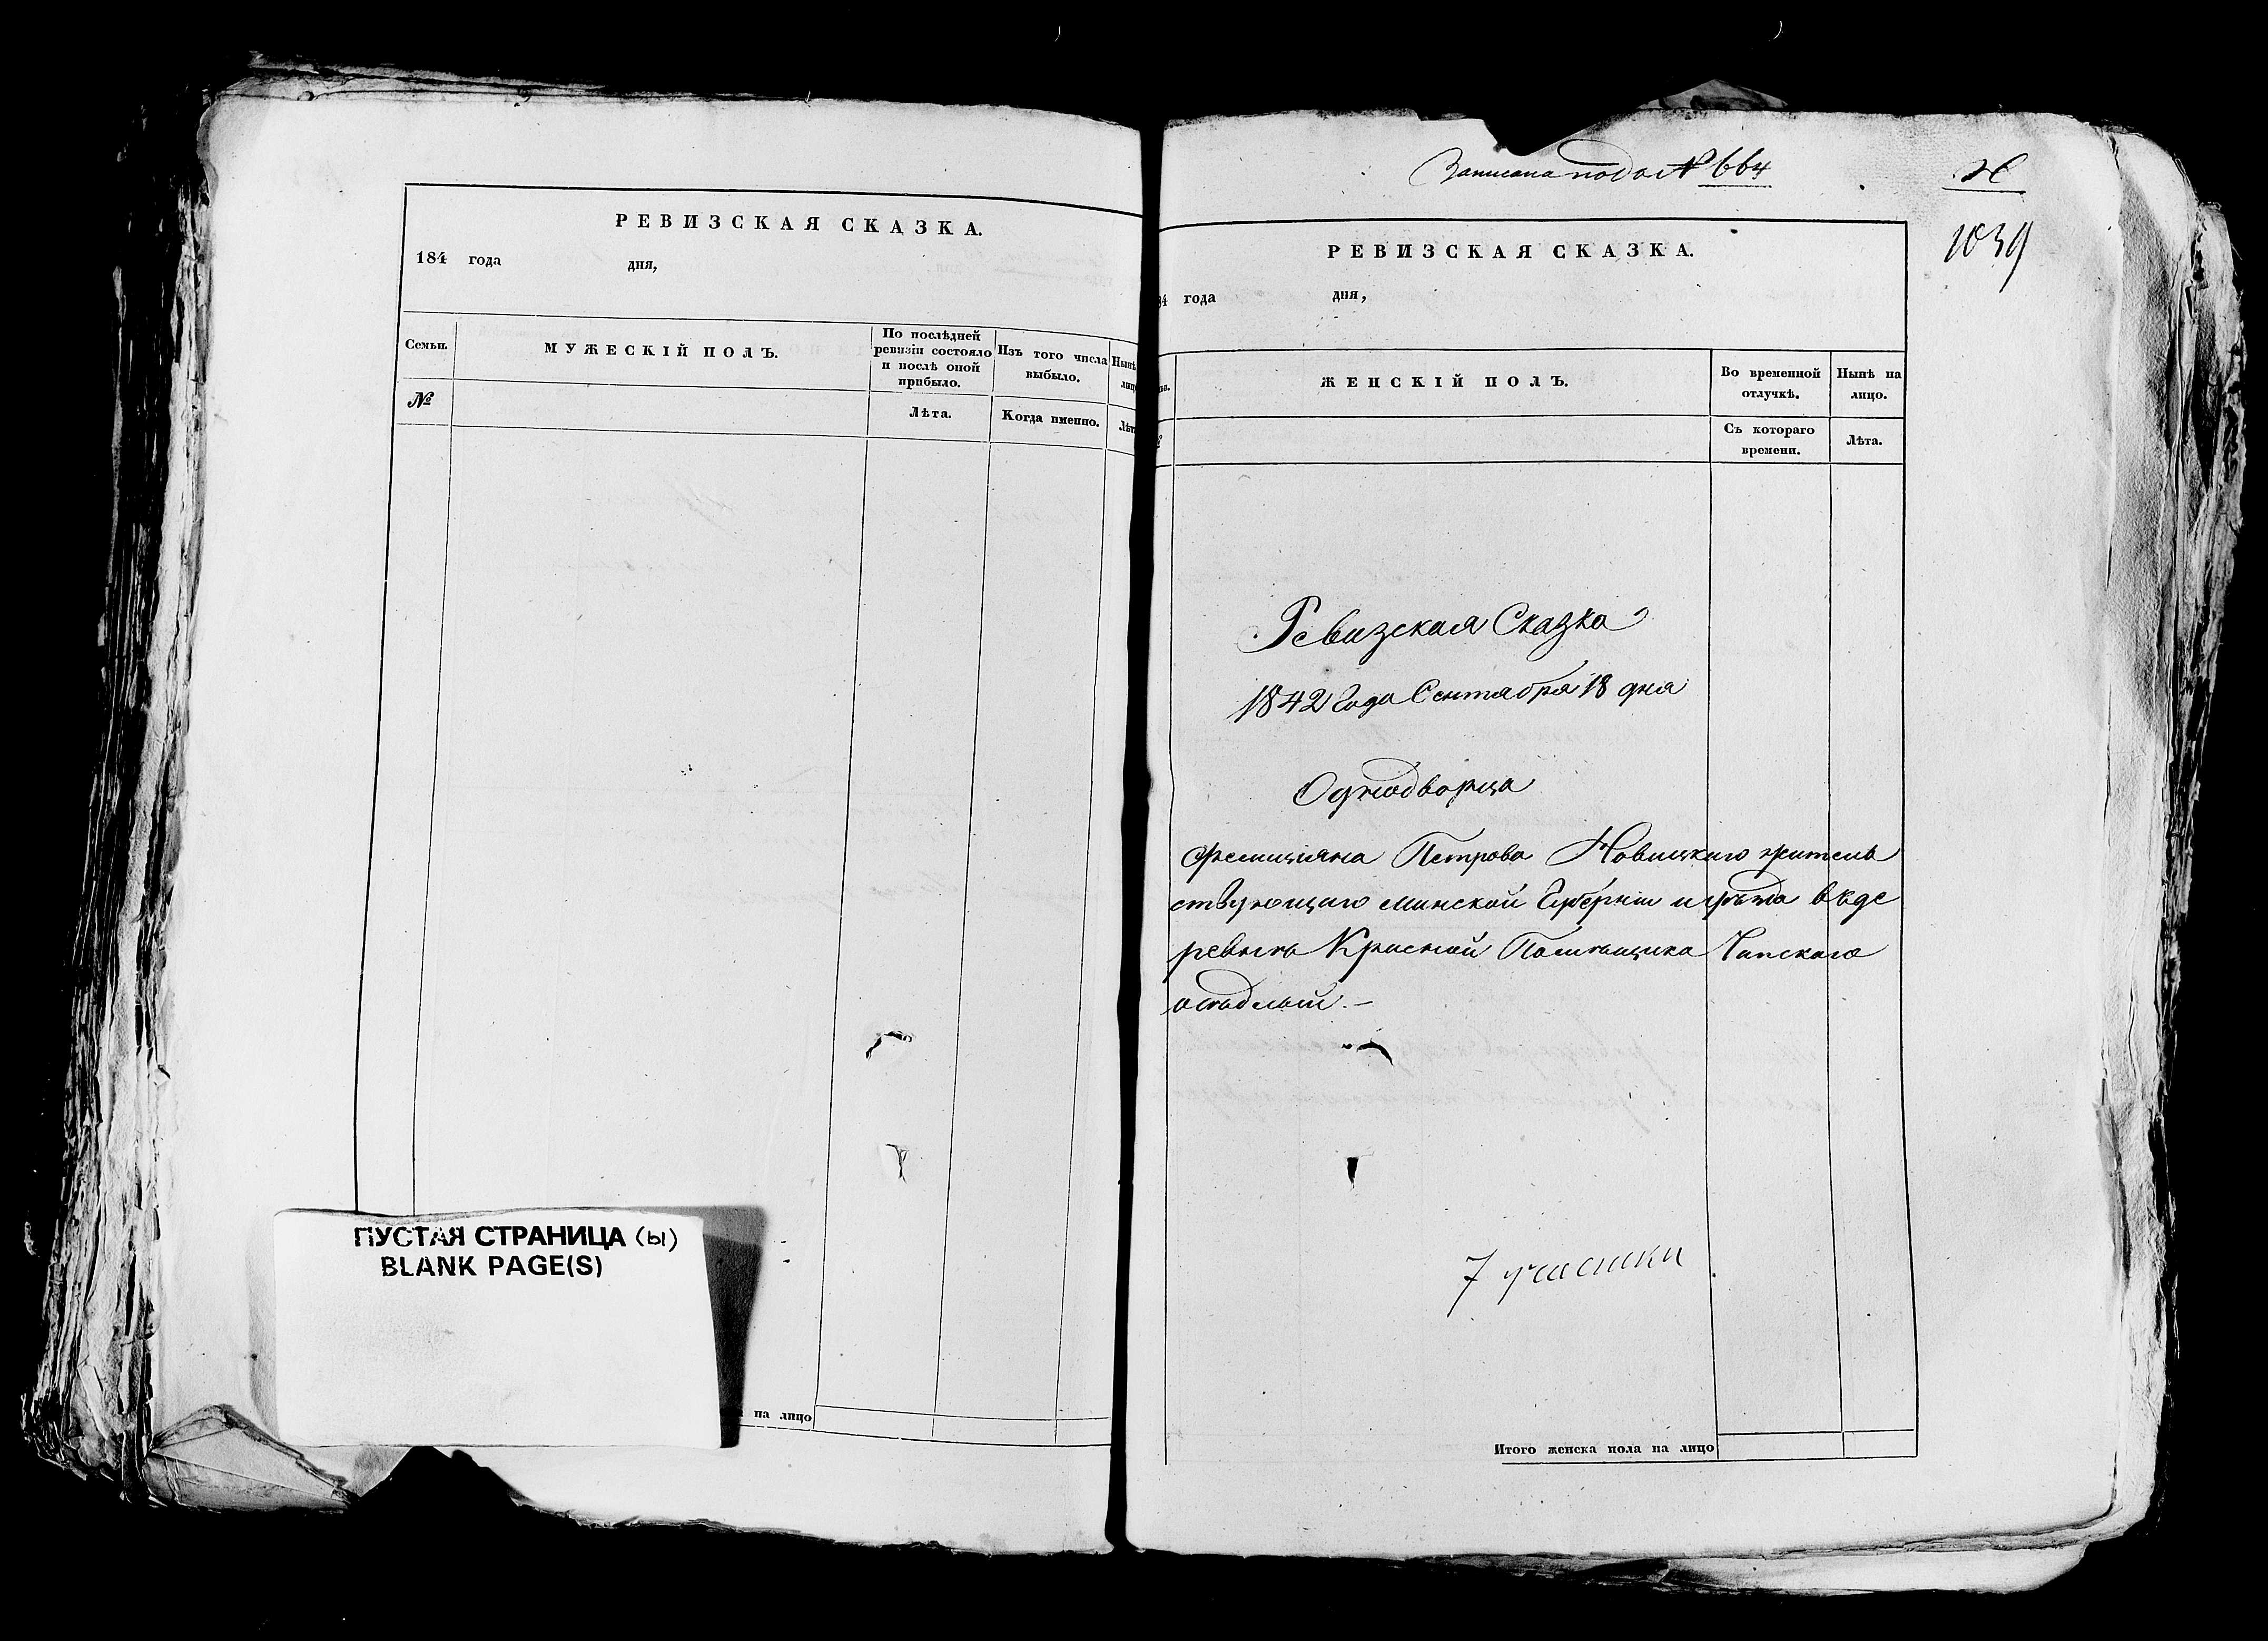 РЕВИЗСКАЯ СКАЗКА.
184 года дня,
Семьи.
МУЖЕСКІЙ ПОЛЪ.
По послѣдней ревизіи состояло и послѣ оной прибыло.
Изъ того числа выбыло.
Нынѣ
лиц
№
Лѣта.
Когда именно.
Лѣт
ПУСТАЯ СТРАНИЦА (ы)
BLANK PAGE(S)
на лицо
Записана подъ № 664
1039
РЕВИЗСКАЯ СКАЗКА.
84 года дня,
ЖЕНСКІЙ ПОЛЪ.
Во временной отлучкѣ.
Нынѣ на лицо.
Съ котораго времени.
Лѣта.
Ревизская Сказка
1842 Года Сентября 18 дня
Однодворца
Фелиціяна Петрова Новицкаго житель
ствующаго Минской Губерніи и уѣзда въ де
ревнѣ Красной Помѣщика Чапскаго
осѣдлый.—
7 участка
Итого женска пола на лицо